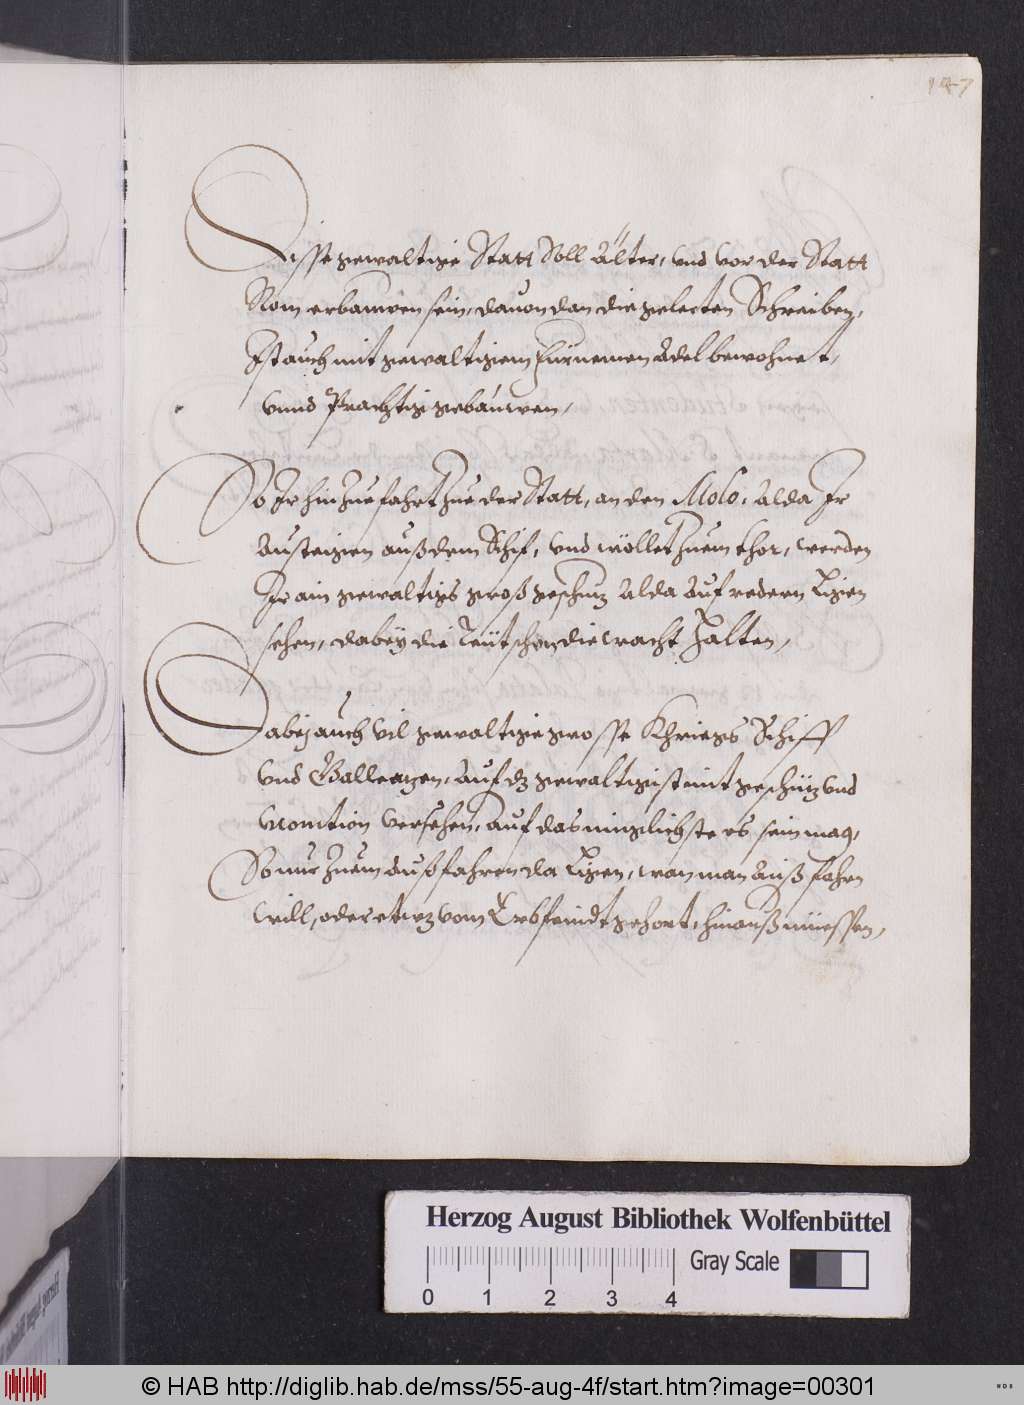 147
Disse gewaltige Statt Soll Älter, vnd vor der Statt
Rom erbauwen sein, dauon dan die gelerten Schreiben,
Ist auch mit gewaltigem fürnemen Adel bewohnet,
vnnd Prachtig gebäuwen,
So Ir hinzue fahrt zue der Statt, an den Molo, Alda Ir
Austeigen auß dem Schif, vnd wöllet zuem thor, werden
Ir ain gewaltigs groß geschutz Alda Auf redern Ligen
sehen, dabeÿ die Teütschen die wacht Halten,
Dabeÿ auch vil gewaltige grosse Khriegs Schiff
vnd Galleagen, Auf dz gewaltigist mit geschütz vnd
Monition versehen, auf das müglichste es sein mag,
So nur zuem Außfahren da Ligen, wan man Auß fahrn
will, oder etwz vom Erbfeindt gehort, hinauß müessen,
Herzog August Bibliothek Wolfenbüttel
Gray Scale
0 1 2 3 4
© HAB http://diglib.hab.de/mss/55-aug-4f/start.htm?image=00301